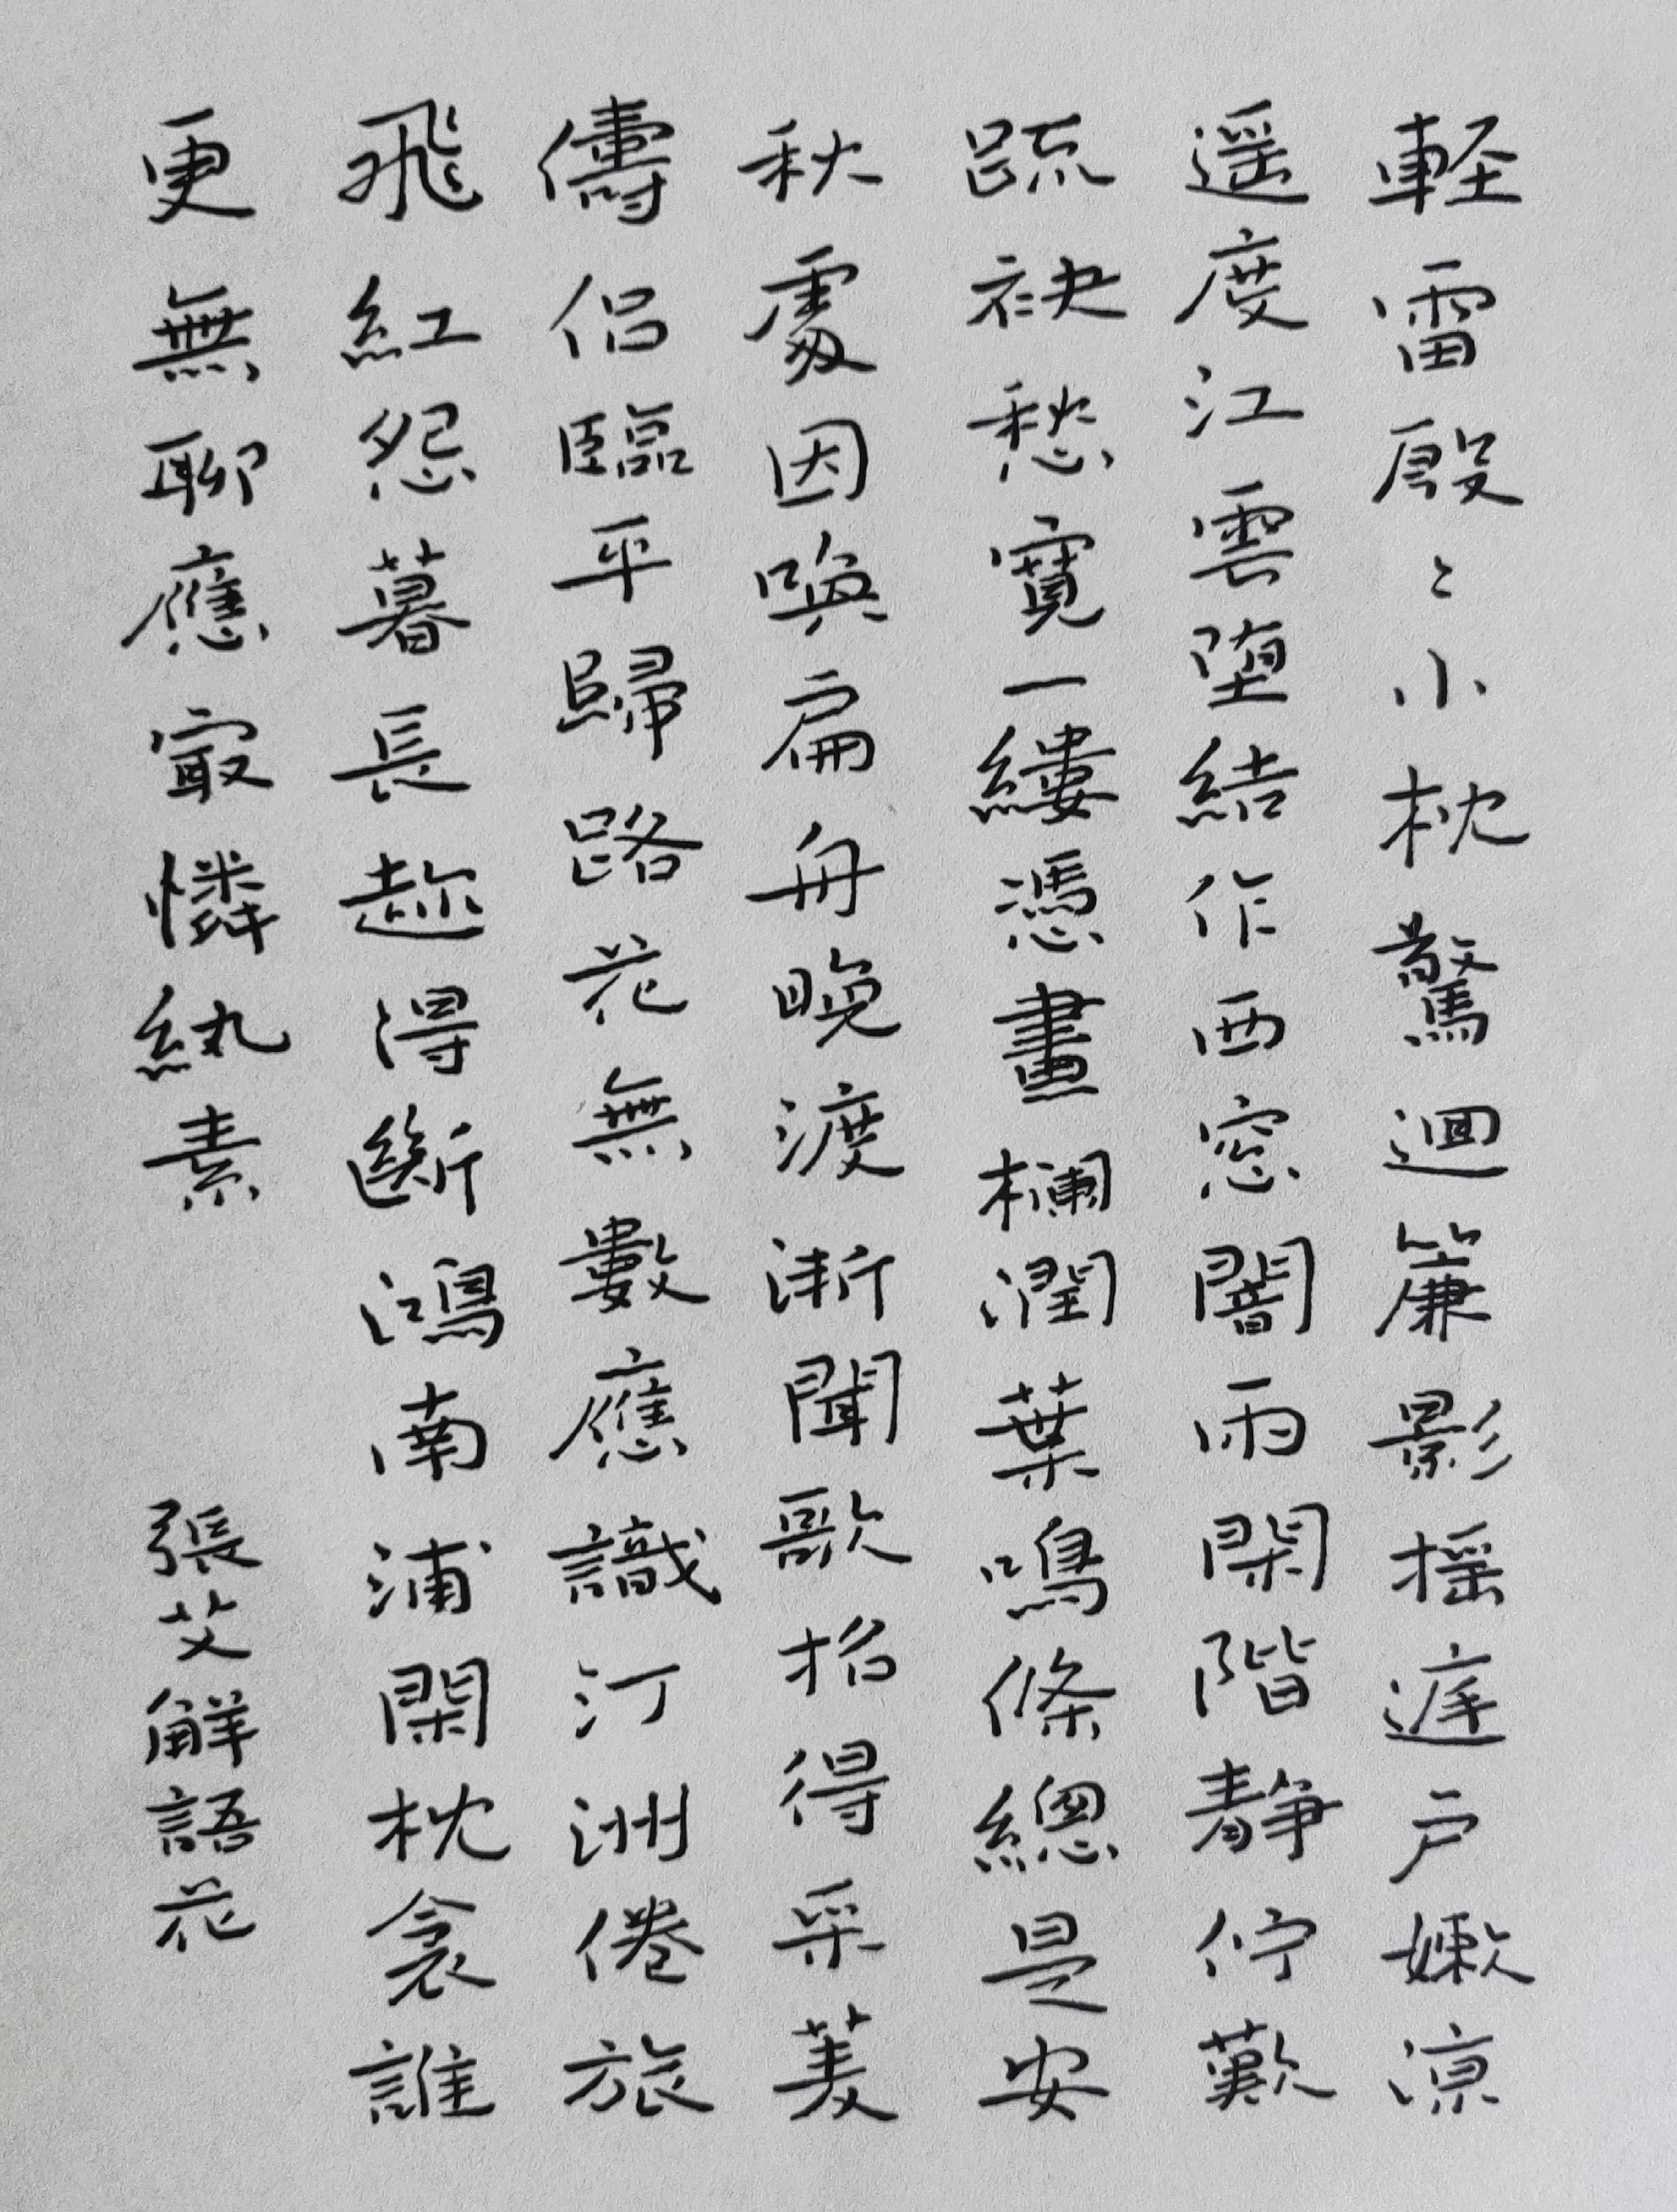 輕雷殷〻小枕驚迴簾影搖遲戶嫩涼
遥度江雲墮結作西窓闇雨閑階靜佇歎
疏袂愁寬一縷憑畫欄潤葉鳴條總是安
秋處因喚扁舟晚渡漸聞歌招得采菱
儔侶臨平歸路花無數應識汀洲倦旅
飛紅怨暮長趂得斷鴻南浦閑枕衾誰
更無聊應寂憐紈素
張艾解語花